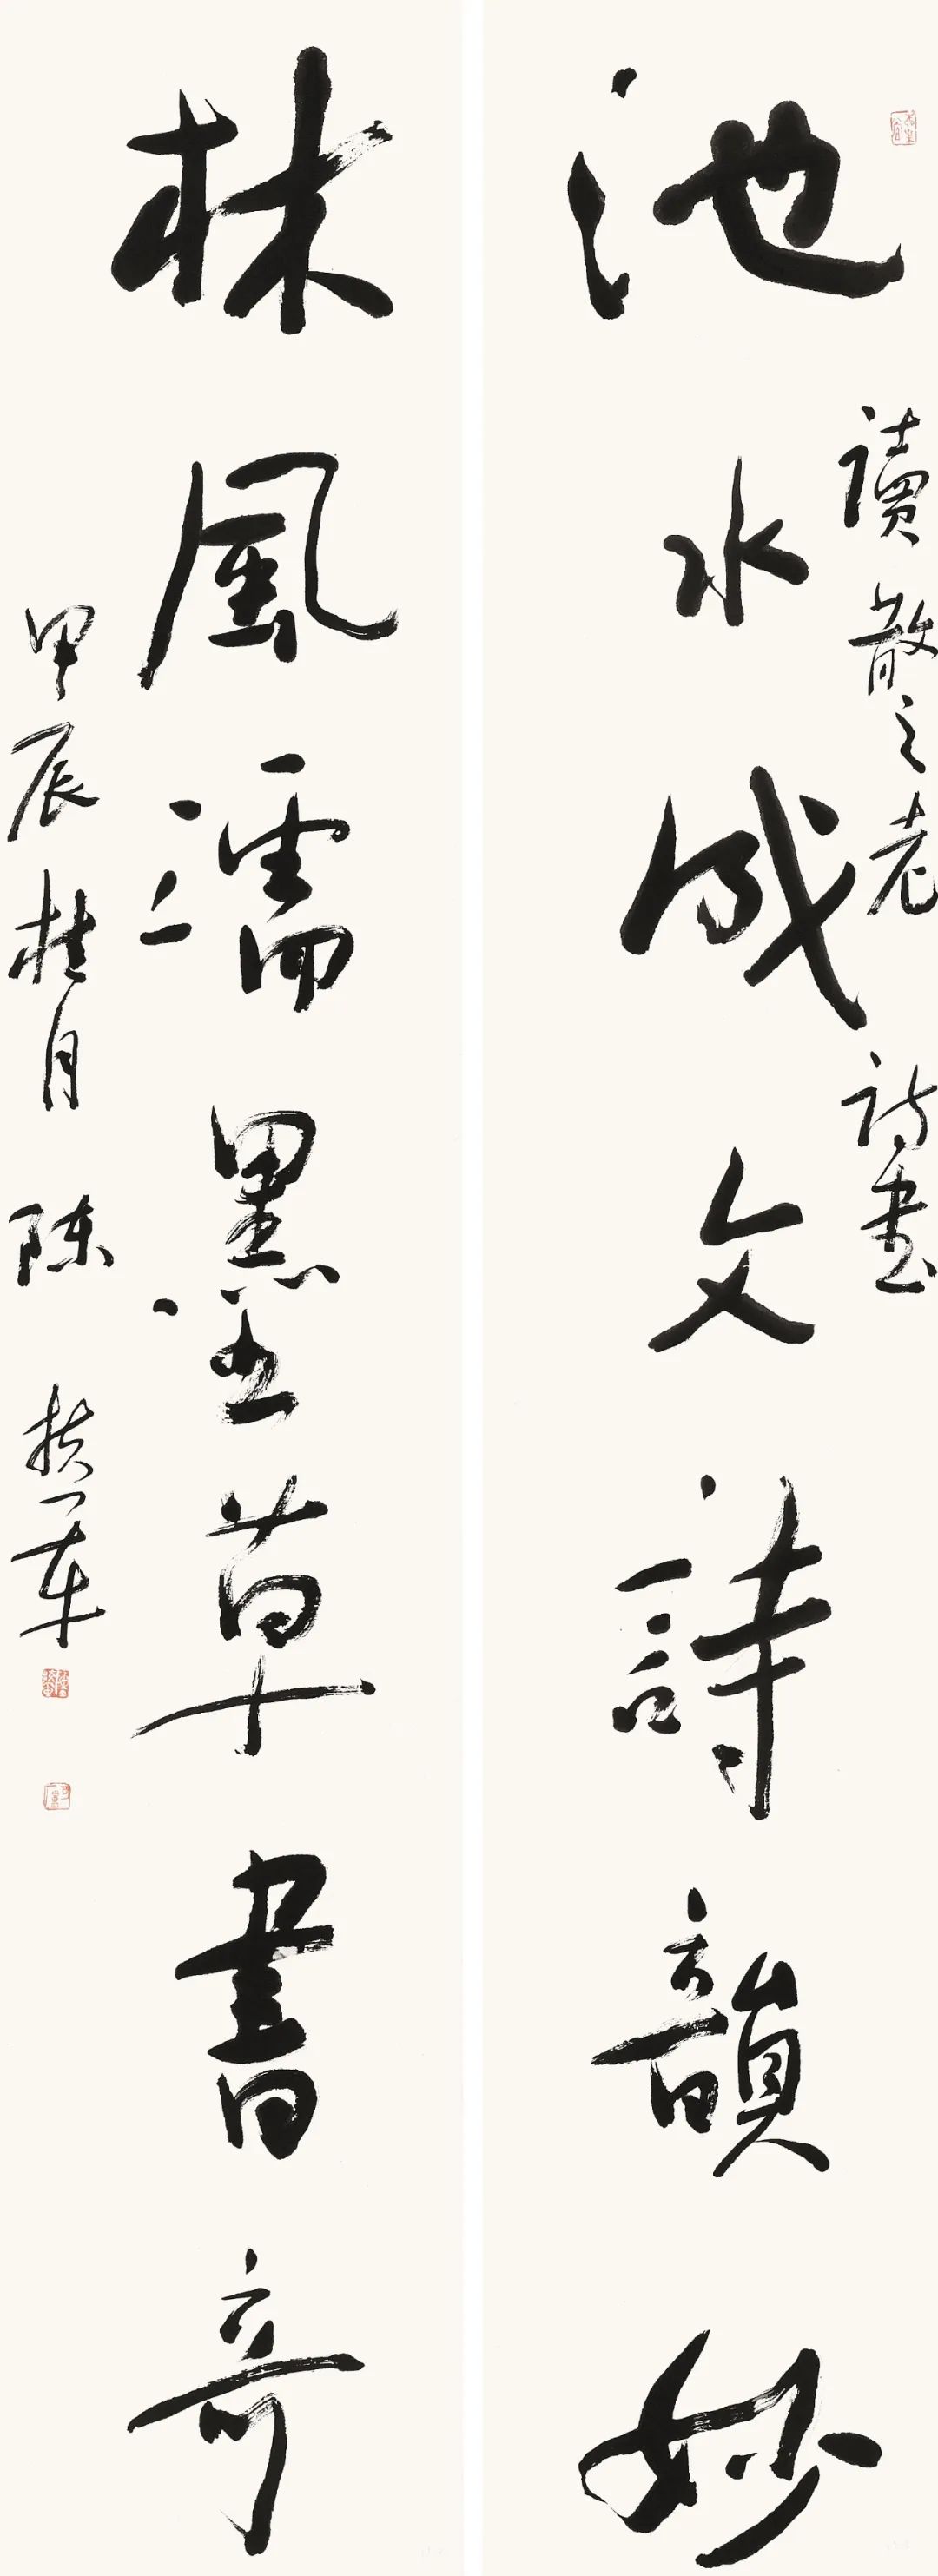 池水成文詩韻妙
讀散之老詩畫
林風濡墨草書奇
甲辰桂月陳軍